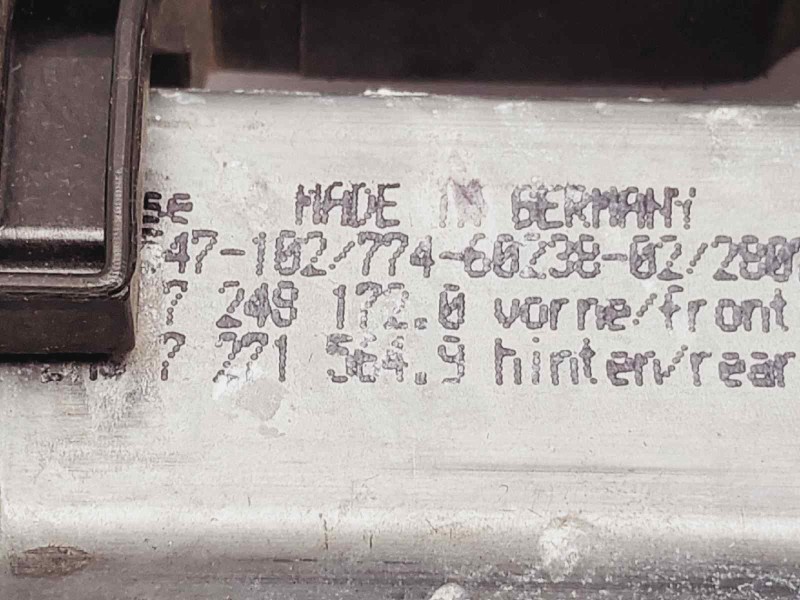 MADE IN GERMANY
47-102/774-60238-02/2801
7 248 172.0 vorne/front
7 271 564.9 hinten/rear